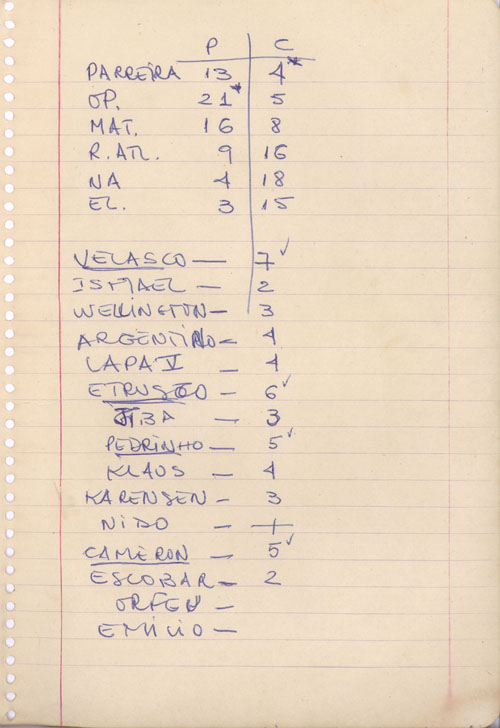 P C
PARREIRA 13 4*
OP. 21* 5
MAT. 16 8
R. ATL. 9 16
NA 4 18
EL. 3 15
VELASCO — 7 ✓
ISMAEL — 2
WELLINGTON — 3
ARGENTINO — 4
LAPA V — 4
ETRUSCO — 6 ✓
JIBA — 3
PEDRINHO — 5 ✓
KLAUS — 4
KARENSEN — 3
NIDO — +
CAMERON — 5 ✓
ESCOBAR — 2
ORFEU —
EMILIO —